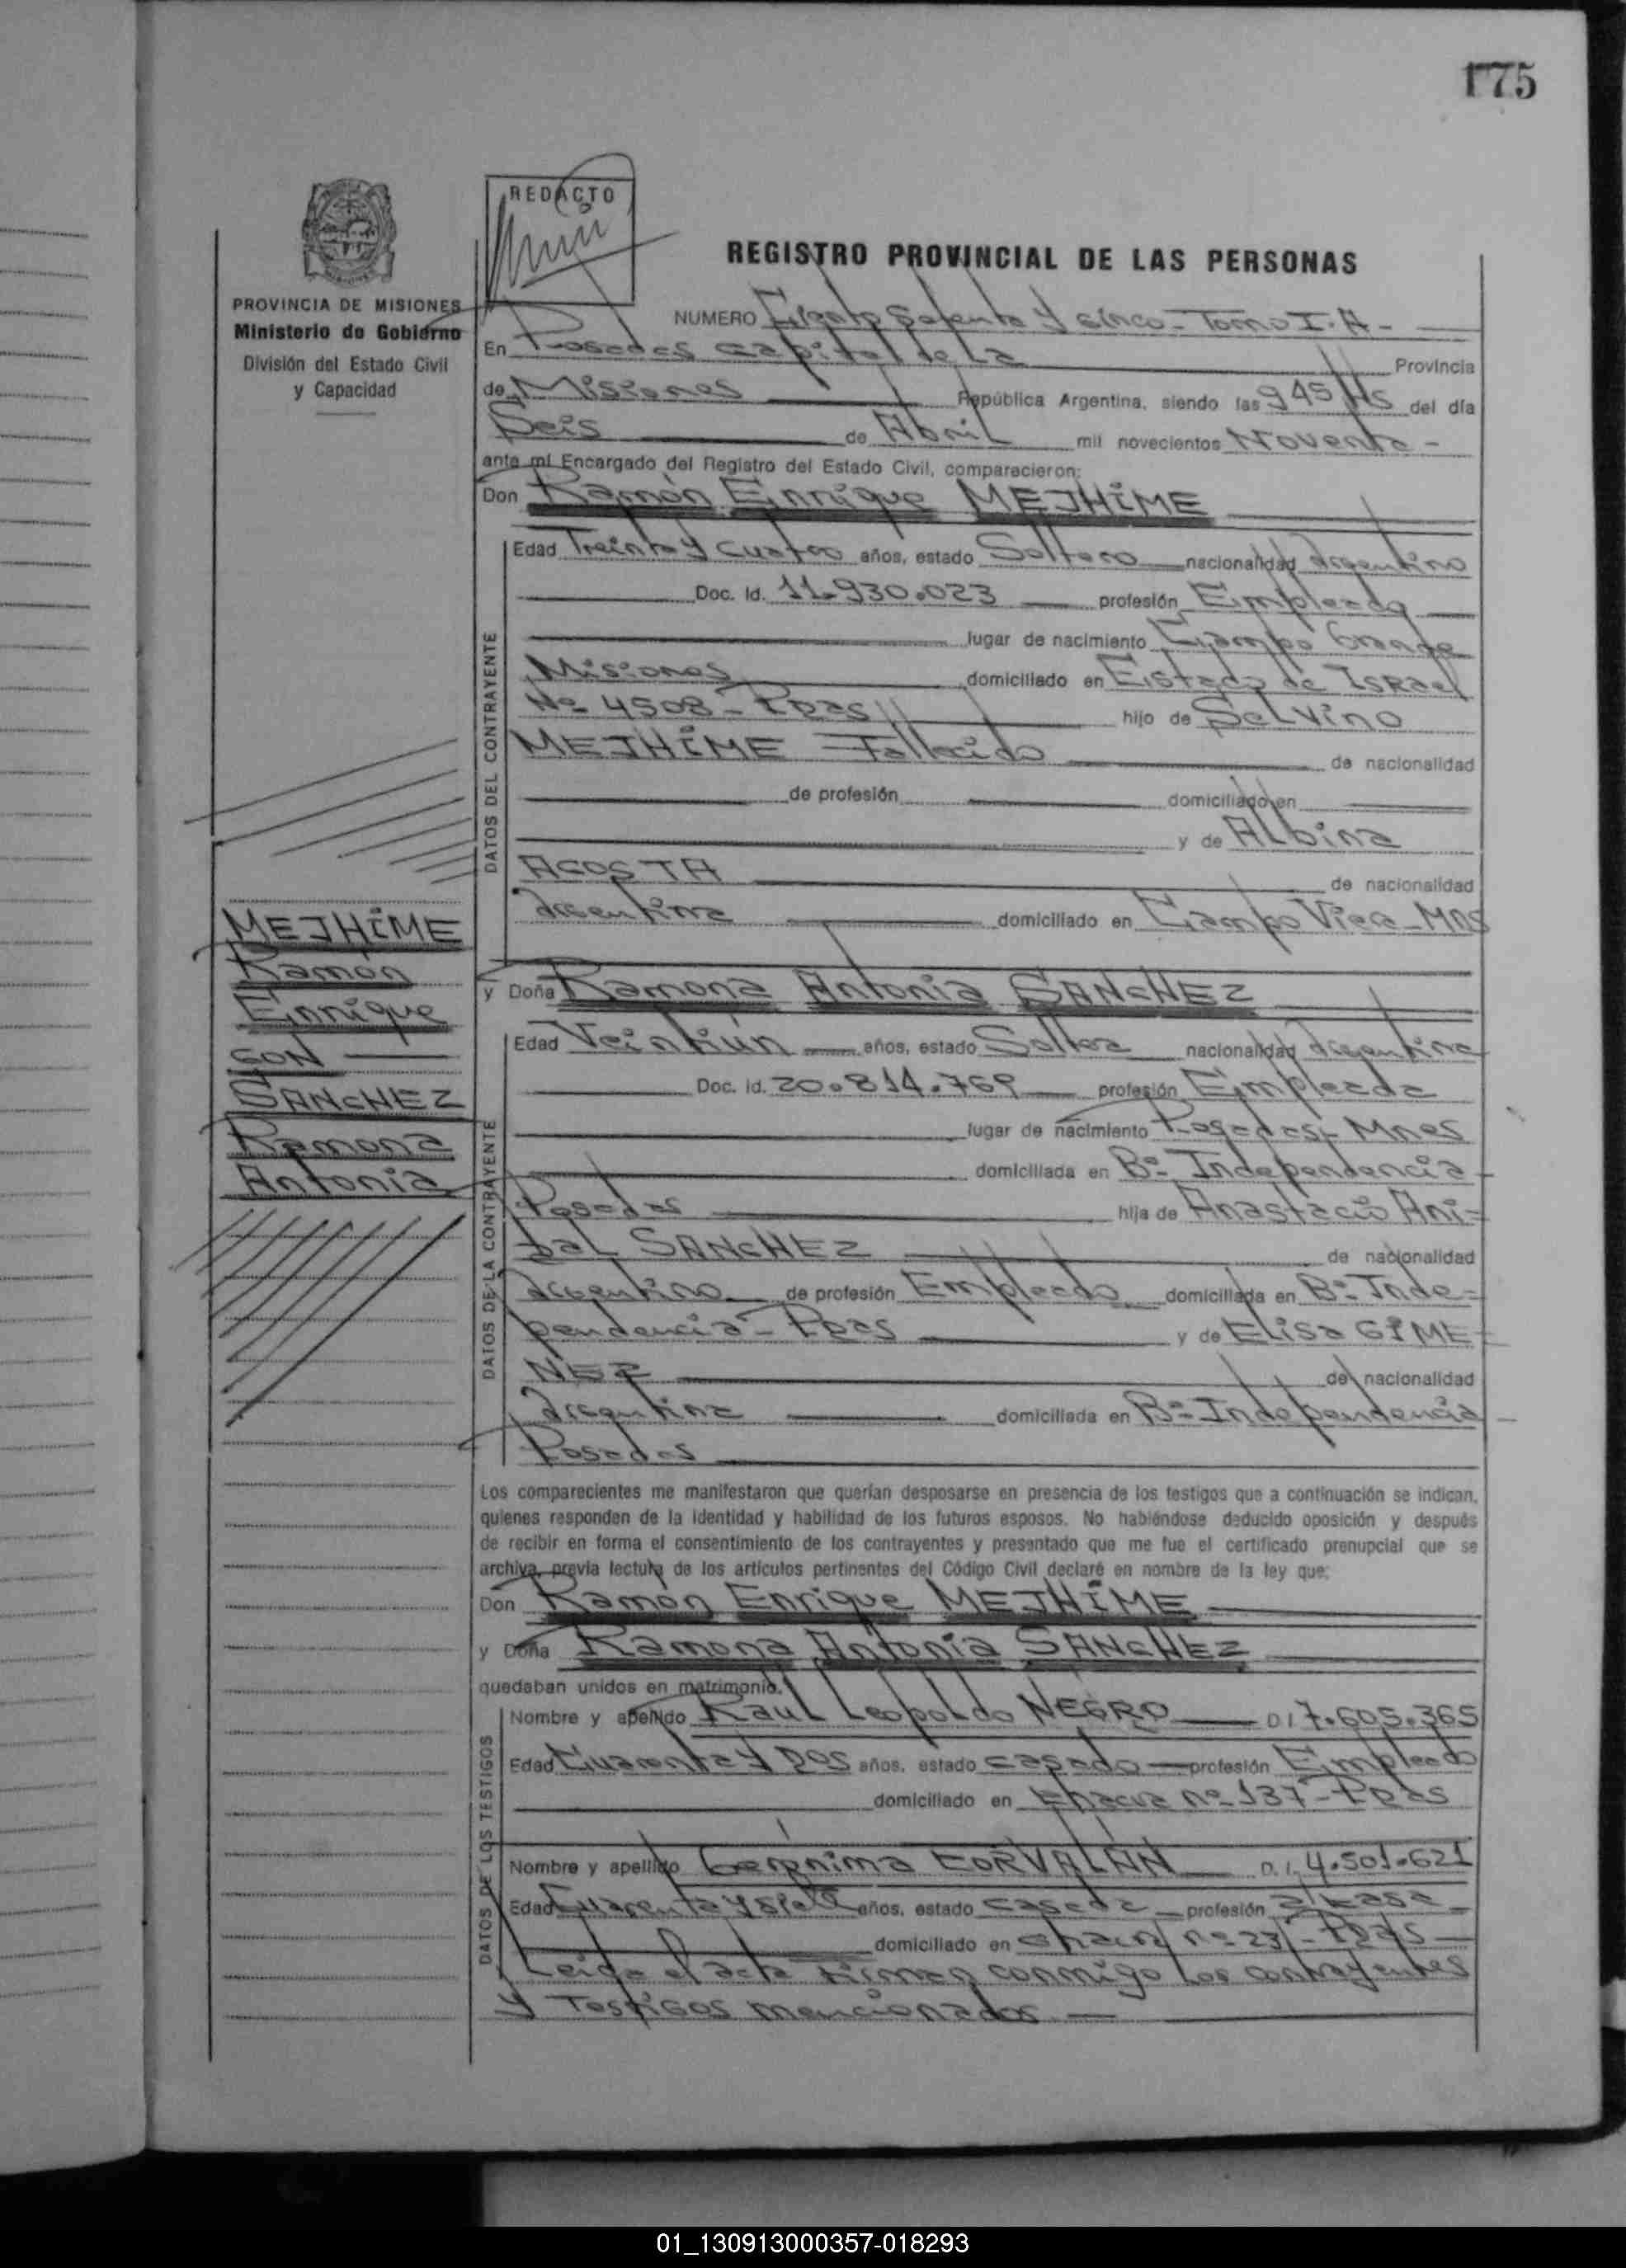 175
REDACTO
REGISTRO PROVINCIAL DE LAS PERSONAS
PROVINCIA DE MISIONES
Ministerio de Gobierno
División del Estado Civil
y Capacidad
NUMERO Ciento Setenta y cinco - Tomo I. A -
En Posadas capital de La Provincia
de Misiones República Argentina, siendo las 9 45 Hs del día
Seis de Abril mil novecientos Noventa -
ante mí Encargado del Registro del Estado Civil, comparecieron:
Don Ramón Enrique MEJHIME
DATOS DEL CONTRAYENTE
Edad Treinta y cuatro años, estado Soltero nacionalidad Argentino
Doc. Id. 11.930.023 profesión Empleado
lugar de nacimiento Campo Grande
Misiones domiciliado en Estado de ISRael
Nº 4508 - Pdas hijo de SeLvino
MEJHIME Fallecido de nacionalidad
de profesión domiciliado en
y de ALbina
ACOSTA de nacionalidad
Argentina domiciliado en Campo Viera - MNS
MEJHIME
Ramón
Enrique
CON
SANcHEZ
Ramona
Antonia
y Doña Ramona Antonia SANcHEZ
DATOS DE LA CONTRAYENTE
Edad Veintiún años, estado Soltera nacionalidad Argentina
Doc. Id. 20.814.769 profesión Empleada
lugar de nacimiento Posadas - Mnes
domiciliada en Bº Independencia -
Posadas hija de Anastacio Ani=
baL SANcHEZ de nacionalidad
Argentino de profesión Empleado domiciliada en Bº Inde=
pendencia - Pdas y de ELisa GIME=
NEZ de nacionalidad
Argentina domiciliada en Bº Independencia -
Posadas
Los comparecientes me manifestaron que querían desposarse en presencia de los testigos que a continuación se indican,
quienes responden de la identidad y habilidad de los futuros esposos. No habiéndose deducido oposición y después
de recibir en forma el consentimiento de los contrayentes y presentado que me fue el certificado prenupcial que se
archiva, previa lectura de los artículos pertinentes del Código Civil declaré en nombre de la ley que:
Don Ramon Enrique MEJHIME
y Doña Ramona Antonia SANcHEZ
quedaban unidos en matrimonio.
DATOS DE LOS TESTIGOS
Nombre y apellido RauL LeopoLdo NEGRO D I 7.605.365
Edad Cuarenta y DOS años, estado casado profesión Empleado
domiciliado en chacra nº 137 - Pdas
Nombre y apellido Gerónima CORVALAN D. I. 4.501.621
Edad Cuarenta y siete años, estado casada profesión
domiciliado en chacra nº 23 - Pdas
Leida el acta Firman conmigo Los contrayentes
y Testigos mencionados. -
01_130913000357-018293